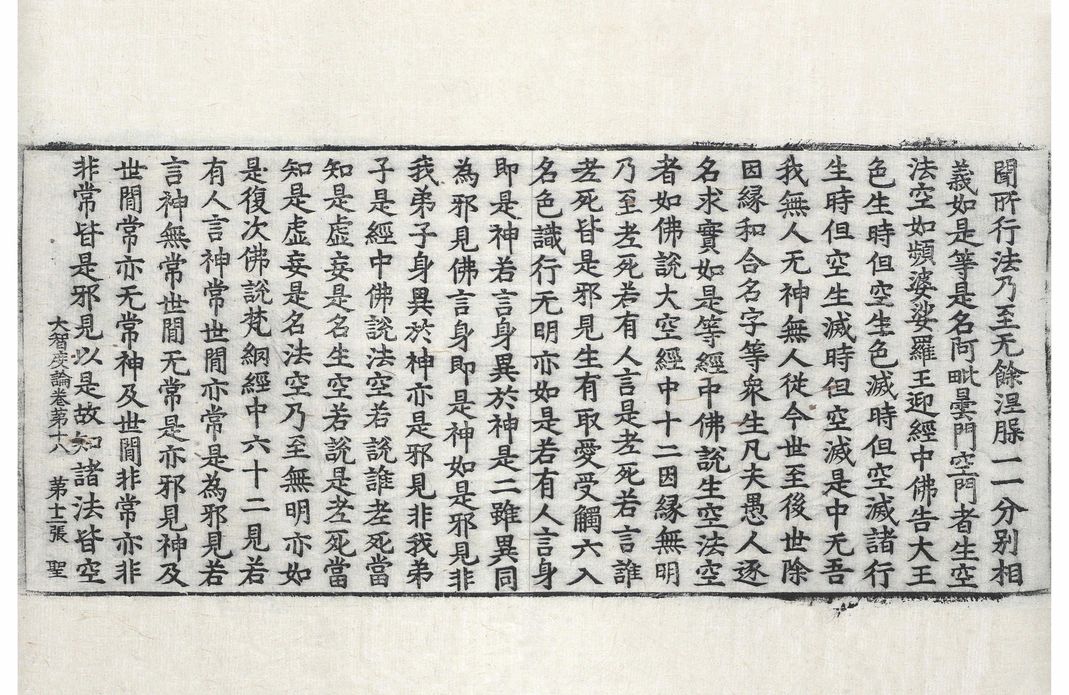 聞所行法乃至无餘涅槃一一分别相
義如是等是名阿毗曇門空門者生空
法空如頻婆娑羅王迎經中佛告大王
色生時但空生色滅時但空滅諸行
生時但空生滅時但空滅是中无吾
我無人无神無人從今世至後世除
因緣和合名字等衆生凡夫愚人逐
名求實如是等經中佛說生空法空
者如佛說大空經中十二因緣無明
乃至老死若有人言是老死若言誰
老死皆是邪見生有取愛受觸六入
名色識行无明亦如是若有人言身
即是神若言身異於神是二雖異同
為邪見佛言身即是神如是邪見非
我弟子身異於神亦是邪見非我弟
子是經中佛說法空若說誰老死當
知是虛妄是名生空若說是老死當
知是虛妄是名法空乃至無明亦如
是復次佛說梵網經中六十二見若
有人言神常世間亦常是為邪見若
言神無常世間无常是亦邪見神及
世間常亦无常神及世間非常亦非
非常皆是邪見以是故知諸法皆空
大智度論卷第十八 第十二張 聖